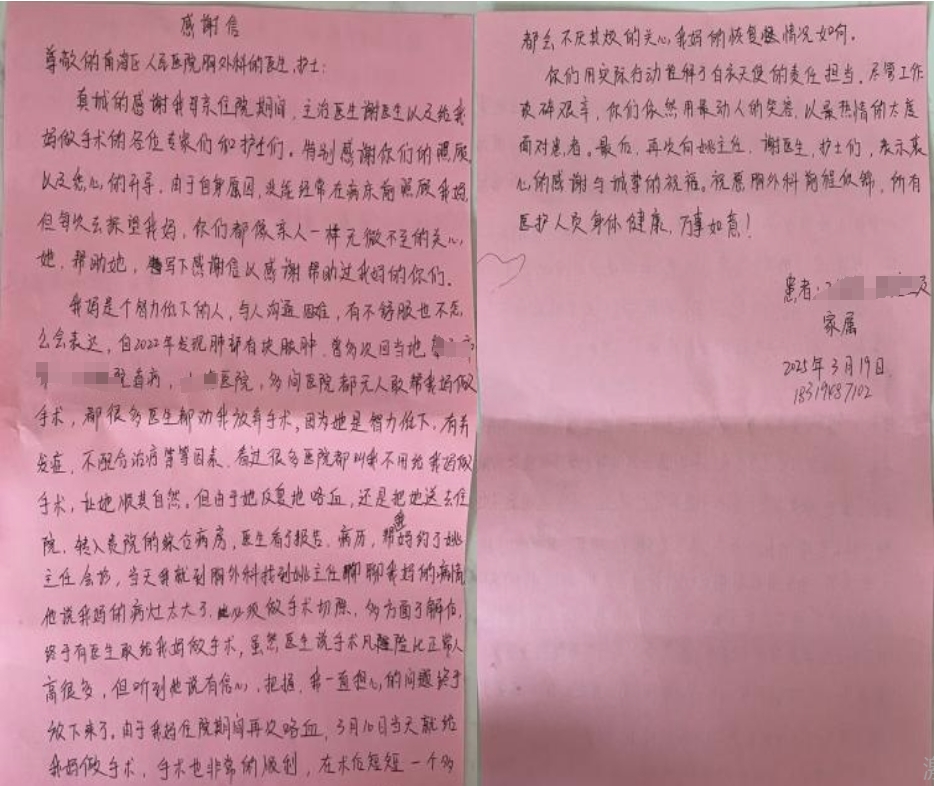 感谢信
尊敬的南海区人民医院胸外科的医生,护士:
真城的感谢我母亲住院期间,主治医生谢医生以及给我
妈做手术的各位专家们和护士们。特别感谢你们的照顾
以及悉心的开导,由于自身原因,没能经常在病床前照顾我妈,
但每次去探望我妈,你们都像亲人一样无微不至的关心
她,帮助她,写下感谢信以感谢帮助过我妈的你们。
我妈是个智力低下的人,与人沟通困难,有不舒服也不怎
么会表达,自2022年发现肺部有块脓肿,曾多次回当地
院看病,医院,多间医院都无人敢帮我妈做
手术,都很多医生都劝我放弃手术,因为她是智力低下,有并
发症,不配合治疗等等因素,看过很多医院都叫我不用给我妈做
手术,让她顺其自然。但由于她反复地咯血,还是把她送去住
院,转入贵院的综合病房,医生看了报告,病历,帮我妈约了姚
主任会诊,当天我就到胸外科找到姚主任聊聊我妈的病情
他说我妈的病灶太大了,必须做手术切除,多方面了解后,
终于有医生敢给我妈做手术,虽然医生说手术风险比正常人
高很多,但听到他说有信心,把握,我一直担心的问题终于
放下来了。由于我妈住院期间再次咯血,3月10日当天就给
我妈做手术,手术也非常的顺利,在术后短短一个多
都会不厌其烦的关心我妈的恢复情况如何。
你们用实际行动诠释了白衣天使的责任担当。尽管工作
琐碎艰辛,你们依然用最动人的笑容,以最热情的太度
面对患者。最后,再次向姚主任,谢医生,护士们,表示衷
心的感谢与诚挚的祝福。祝愿胸外科前程似锦,所有
医护人员身体健康,万事如意!
患者:及
家属
2025年3月19日
18319487102